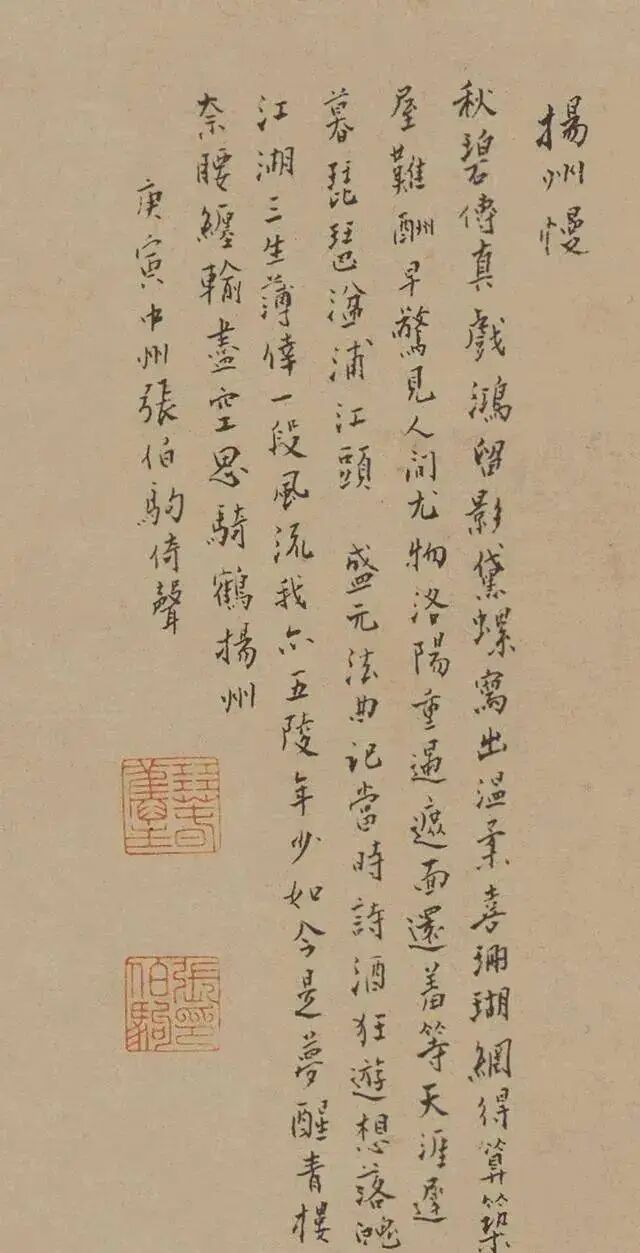 揚州慢
秋碧傳真戲鴻留影黛螺寫出溫柔喜珊瑚網得算築
屋難酬早驚見人間尤物洛陽重遇遮面還羞等天涯遲
暮琵琶湓浦江頭 盛元法曲記當時詩酒狂遊想落魄
江湖三生薄倖一段風流我亦五陵年少如今是夢醒青樓
奈腰纏輸盡空思騎鶴揚州
庚寅中州張伯駒倚聲
張印伯駒